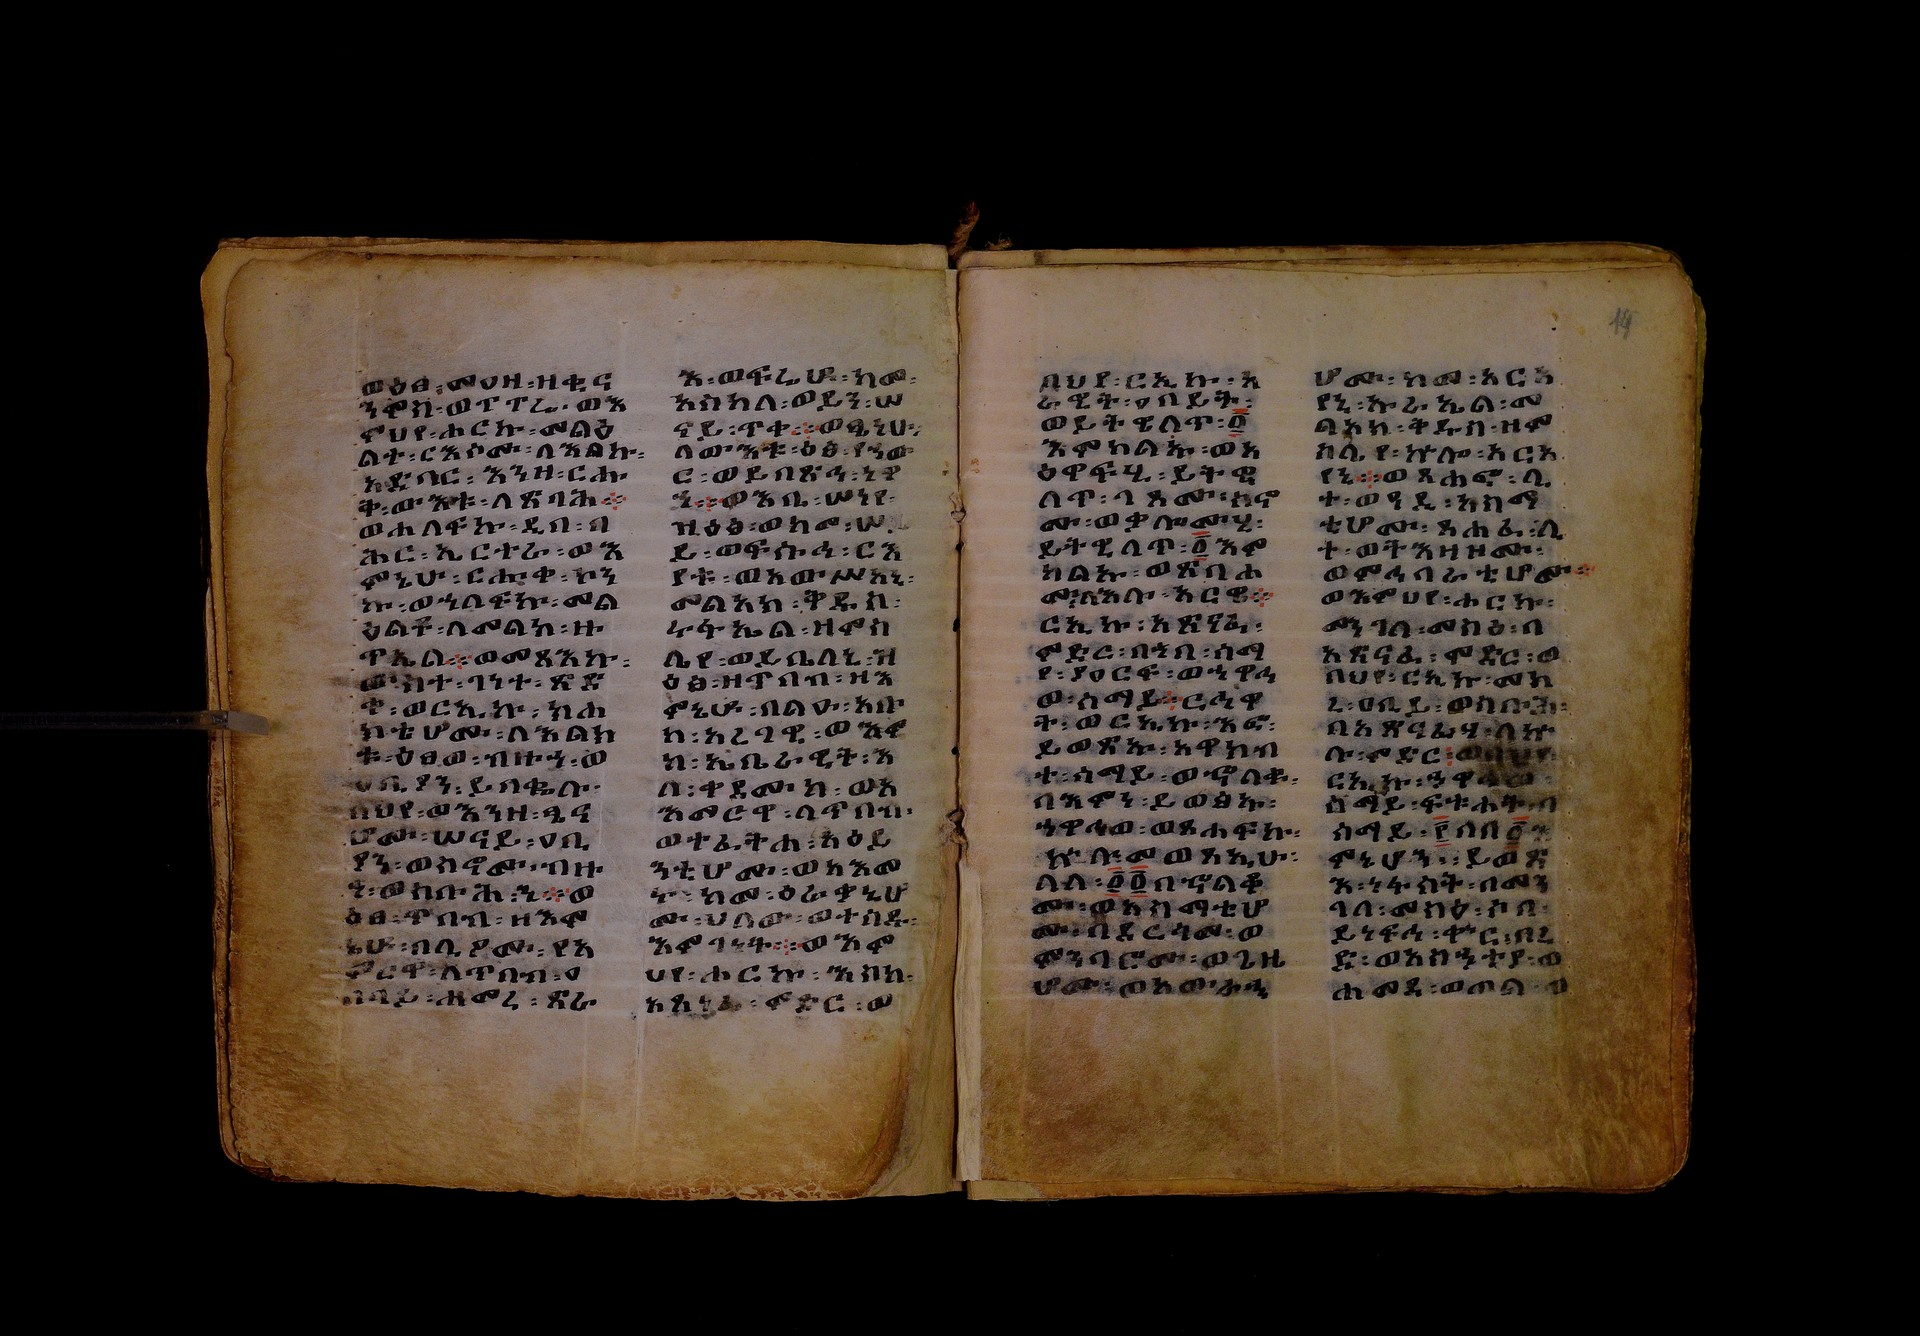 ወዕፀ፡መዐዛ፡ዘቂና
ንሞስ፡ወፐፐሬ፡ወእ
ምህየ፡ሖርኩ፡መልዕ
ልተ፡ርእሶሙ፡ለእልኩ፡
አድባር፡እንዘ፡ርሑ
ቅ፡ውእቱ፡ለጽባሕ፨
ወኀለፍኩ፡ዲበ፡ባ
ሕር፡ኢርተራ፡ወእ
ምኔሁ፡ርሑቀ፡ኮን
ኩ፡ወኀለፍኩ፡መል
ዕልቶ፡ለመልአክ፡ዙ
ጥኤል፨ወመጻእኩ፡
ውስተ፡ገነተ፡ጽድ
ቅ፡ወርኢኩ፡ካሐ
ክቲሆሙ፡ለእልክ
ቱ፡ዕፀወ፡ብዙኃ፡ወ
ዐቢያን፡ይበቍሉ፡
በህየ፡ወእንዘ፡ፄና
ሆሙ፡ሠናይ፡ዐቢ
ያን፡ወስኖሙ፡ብዙ
ኅ፡ወስቡሕ፡ን፨ወ
ዕፀ፡ጥበብ፡ዘእም
ኔሁ፡በሊዖሙ፡የአ
ምርዋ፡ለጥበብ፡ዐ
ባይ፡
እ፡ወፍሬሁ፡ከመ፡
አስካለ፡ወይን፡ሠ
ናይ፡ጥቀ፨ወጼናሁ፡
ለውእቱ፡ዕፅ፡የኀው
ር፡ወይበጽሕ፡ነዋ
ኀ፨ወእቤ፡ሠናየ፡
ዝዕፅ፡ወከመ፡ሠ
ይ፡ወፍሡሕ፡ርእ
የቱ፡ወአውሥአኒ፡
መልአክ፡ቅዱስ፡
ራፋኤል፡ዘምስ
ሌየ፡ወይቤለኒ፡ዝ
ዕፅ፡ዘጥበብ፡ዘእ
ምኔሁ፡በልዑ፡አቡ
ከ፡አረጋዊ፡ወእሞ
ከ፡ኢቤራዊት፡እ
ለ፡ቀደሙከ፡ወአ
እመርዋ፡ለጥበብ፡
ወተፈትሐ፡አዕይ
ንቲሆሙ፡ወአእመ
ሩ፡ከመ፡ዕራቃኒሆ
ሙ፡ሀለው፡ወተሰዱ፡
እምገነት፨ወእም
ህየ፡ሖርኩ፡እስከ፡
አጽናፈ፡ምድር፡ወ
በህየ፡ርኢኩ፡አ
ራዊተ፡ዐበይተ፡
ወይትዌለጥ፡፩
እምካልኡ፡ወአ
ዕዋፍሂ፡ይትዌ
ለጥ፡ገጾሙ፡ስኖ
ሙ፡ወቃሎሙሂ፡
ይትዌለጥ፡፩እም
ካልኡ፡ወጽባሐ
ሙ፡ለእሉ፡አርዌ፨
ርኢኩ፡አጽናፈ፡
ምድር፡በኀበ፡ሰማ
የ፡ያዐርፍ፡ወኀዋኅ
ወ፡ሰማይ፨ርኅዋ
ት፡ወርኢኩ፡እፎ፡
ይወጽኡ፡አዋክብ
ተ፡ሰማይ፡ወኖለቁ፡
በእምነ፡ይወፅኡ፡
ኀዋኅወ፡ወጸሐፍኩ፡
ኵሎ፡መወጻኢሁ፡
ለለ፡፩፩በኆልቆ
ሙ፡ወአስማቲሆ
ሙ፡በደርጎሙ፡ወ
ምንባሮሙ፡ወጊዜ
ሆሙ፡ወአውራኅ
ሆሙ፡ከመ፡አርአ
የኒ፡ኡራኤል፡መ
ልአክ፡ቅዱስ፡ዘም
ስሌየ፡ኵሎ፡አርአ
የኒ፨ወጸሐፎ፡ሊ
ተ፡ወዓዲ፡አስማ
ቲሆሙ፡ጸሐፈ፡ሊ
ተ፡ወትእዛዞሙ፡
ወምግባራቲሆሙ፨
ወእምህየ፡ሖርኩ፡
መንገለ፡መስዕ፡በ
አጽናፈ፡ምድር፡ወ
በህየ፡ርኢኩ፡መክ
ረ፡ዐቢይ፡ወስቡሕ፡
በአጽናፊሃ፡ለኵ
ሉ፡ምድር፡ወበህየ፡
ርኢኩ፡ኀዋኅወ፡
ሰማይ፡ፍቱሓት፡በ
ሰማይ፡፫በበ፩፡እ
ምኔሆን፡ይወፅ
እ፡ነፋስት፡በመን
ገለ፡መስዕ፡ሶበ፡
ይነፍኅ፡ቍር፡በረ
ድ፡ወአስሐትያ፡ወ
ሐመዳ፡ወጠል፡ወ